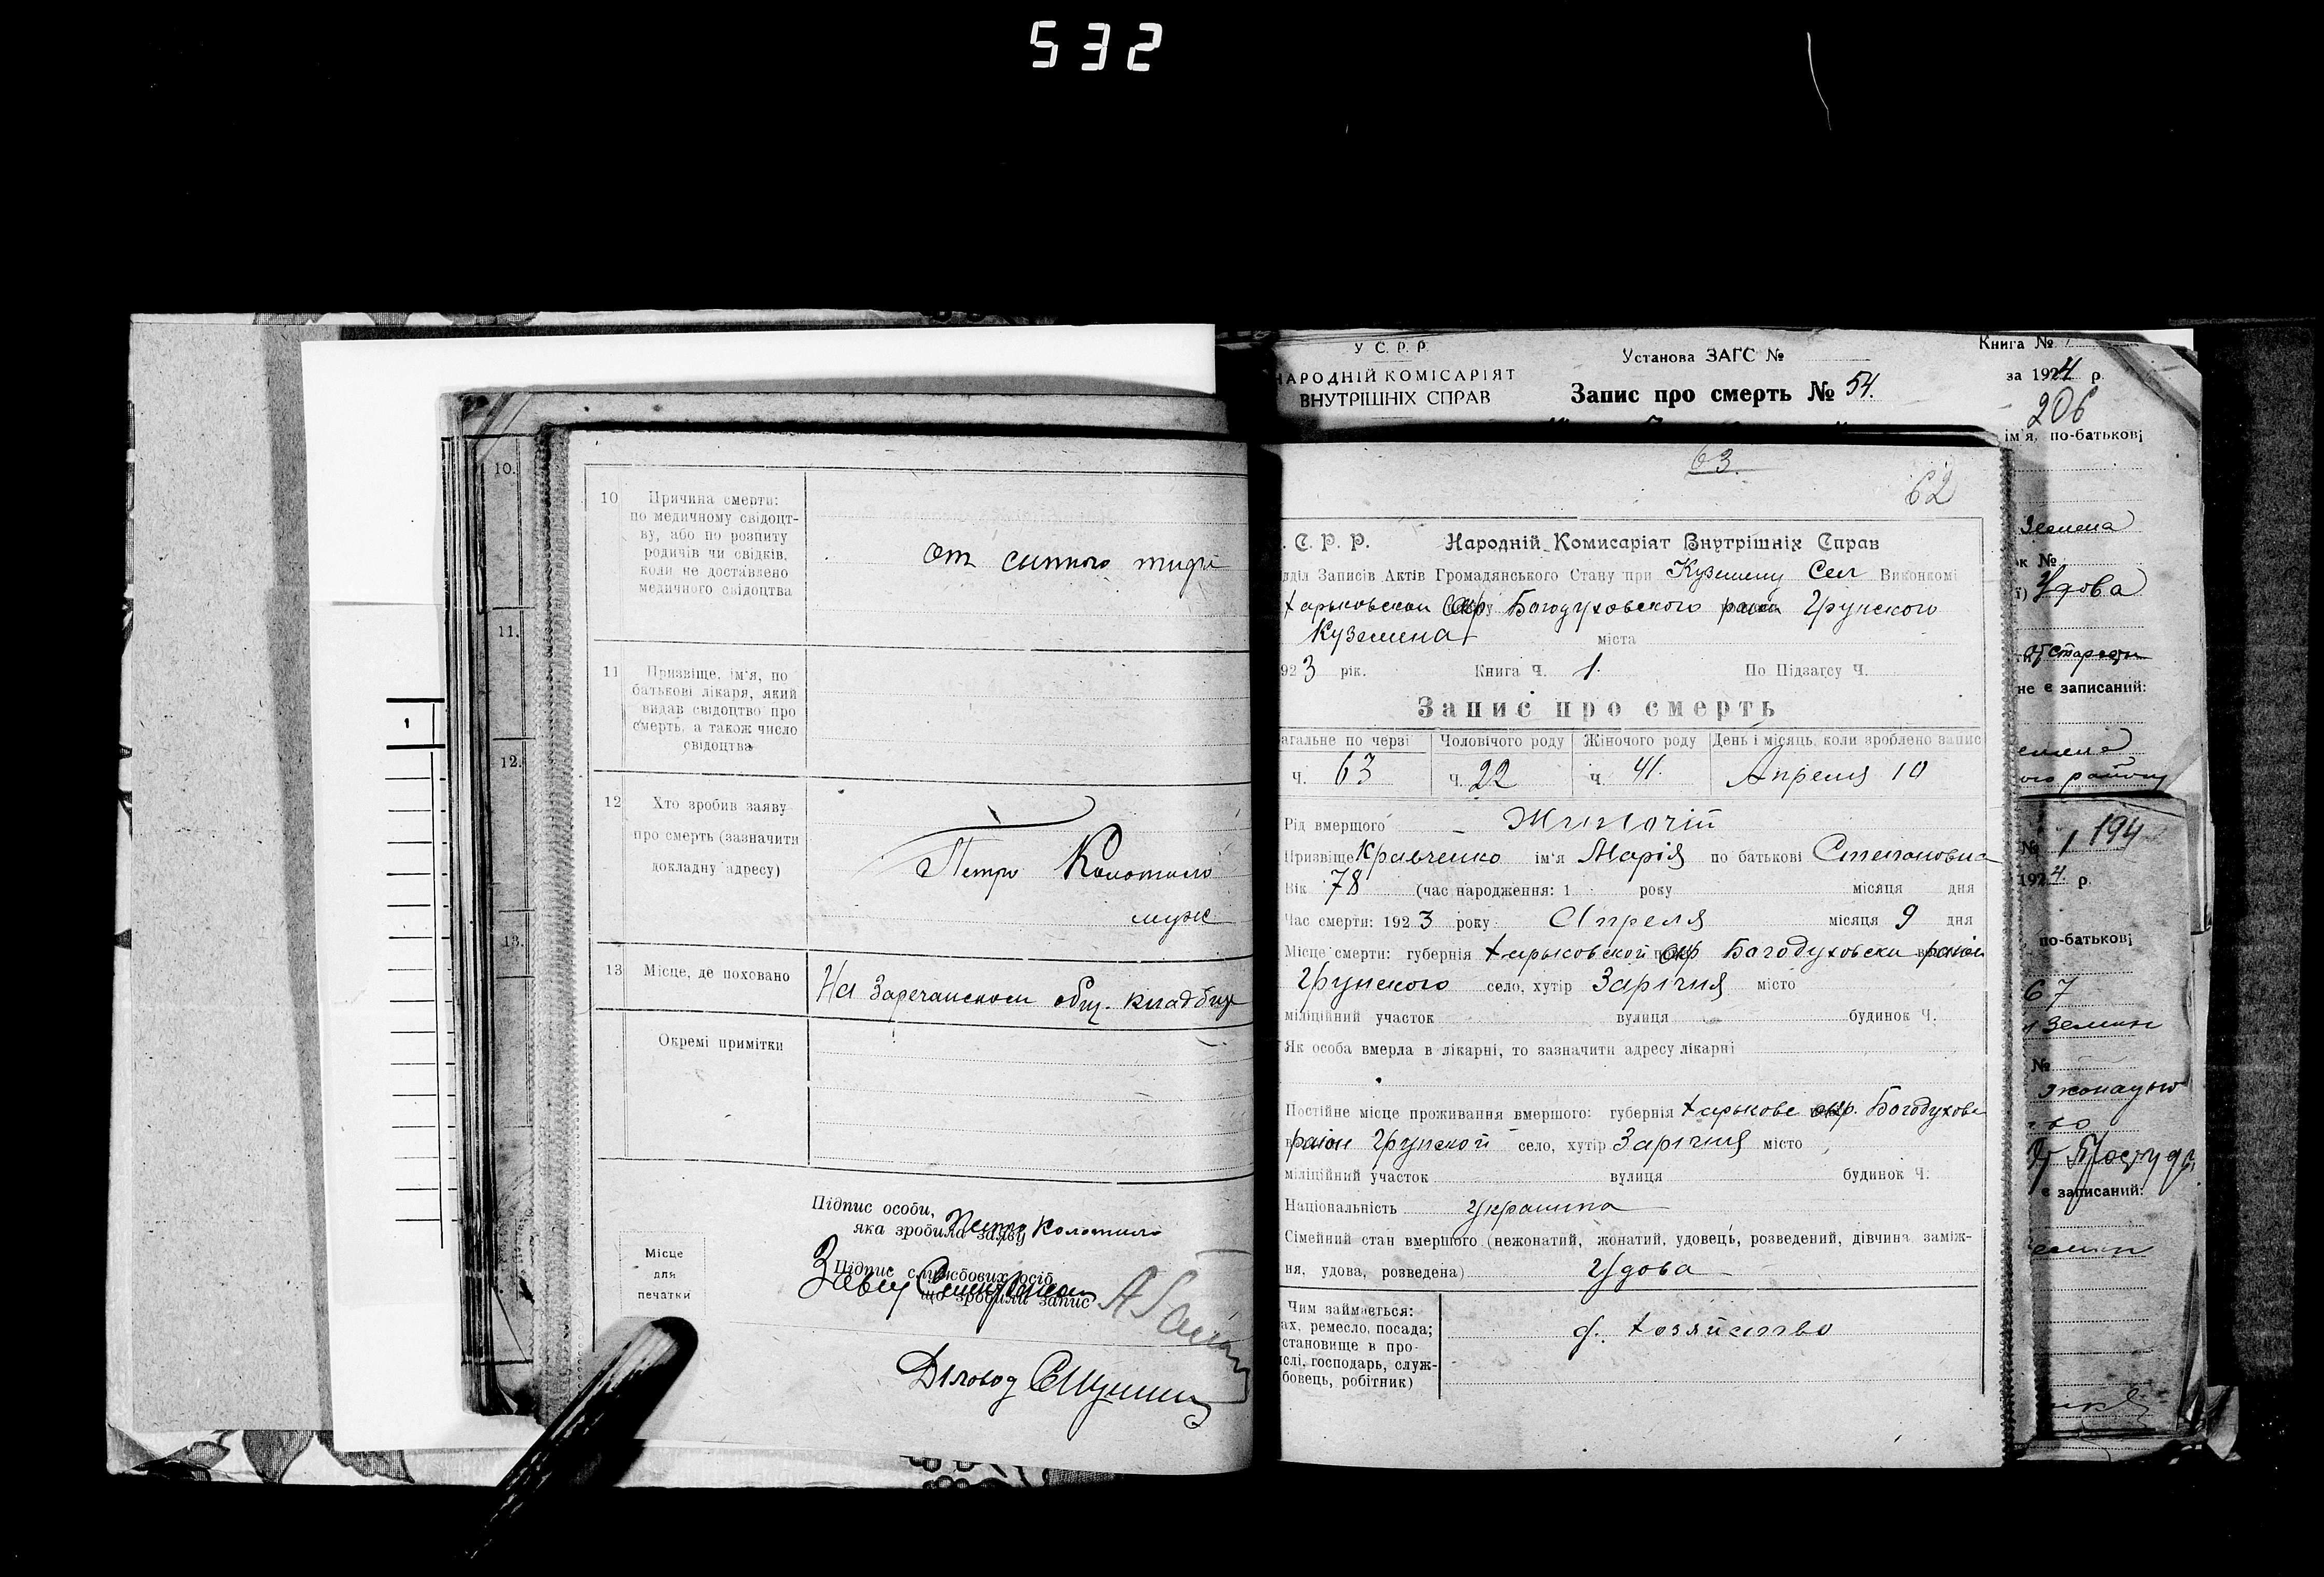 532
10.
11.
12.
13.
1
10 Причина смерти:
по медичному свідоцт-
ву, або по розпиту
родичів чи свідків,
коли не доставлено
медичного свідоцтва
От сыпного тифа
11 Призвіще, ім'я, по
батькові лікаря, який
видав свідоцтво про
смерть, а також число
свідоцтва
12 Хто зробив заяву
про смерть (зазначити
докладну адресу)
Петро Коломило
муж
13 Місце, де поховано
На Заречанском общ. кладбище
Окремі примітки
Підпис особи,
яка зробила заяву Петро Коломило
Підпис службових осіб
що зробили запис
Місце
для
печатки
Діловод
У С. Р. Р.
НАРОДНІЙ КОМІСАРІЯТ
ВНУТРІШНІХ СПРАВ
Установа ЗАГС №
Запис про смерть № 54.
Книга №
за 1924 р.
206
ім'я, по-батькові
63.
62
. С. Р. Р. Народній Комисаріят Внутрішніх Справ
дділ Записів Актів Громадянського Стану при Куземену Сел Виконкомі
Харьковскои Окр Богодуховского раион Грунского
Куземена міста
923 рік. Книга Ч. 1. По Підзагсу Ч.
Запис про смерть
агальне по черзі Чоловічого роду Жіночого роду День і місяць, коли зроблено запис
ч. 63 ч. 22 ч. 41. Апреля 10
Рід вмершого Жиночій
Призвіще Кравченко ім'я Марія по батькові Степановна
Вік 78 (час народження: 1 року місяця дня
Час смерти: 1923 року Апреля місяця 9 дня
Місце смерти: губернія Харьковской окр Богодуховски раион
Грунского село, хутір Зарічня місто
міліційний участок вулиця будинок Ч.
Як особа вмерла в лікарні, то зазначити адресу лікарні
Постійне місце проживання вмершого: губернія Харьковс окр. Богодухове
раион Грунской село, хутір Зарічня місто
міліційний участок вулиця будинок Ч.
Національність Украинка
Сімейний стан вмершого (нежонатий, жонатий, удовець, розведений, дівчина, заміж-
ня, удова, розведена) Удова
Чим займається:
ах, ремесло, посада;
становище в про-
слі, господарь, служ-
бовець, робітник)
д. хозяйство
к №
Удова
От старости
не є записаний:
№ 1 194
1924. р.
по-батькові
67
№
є записаний: